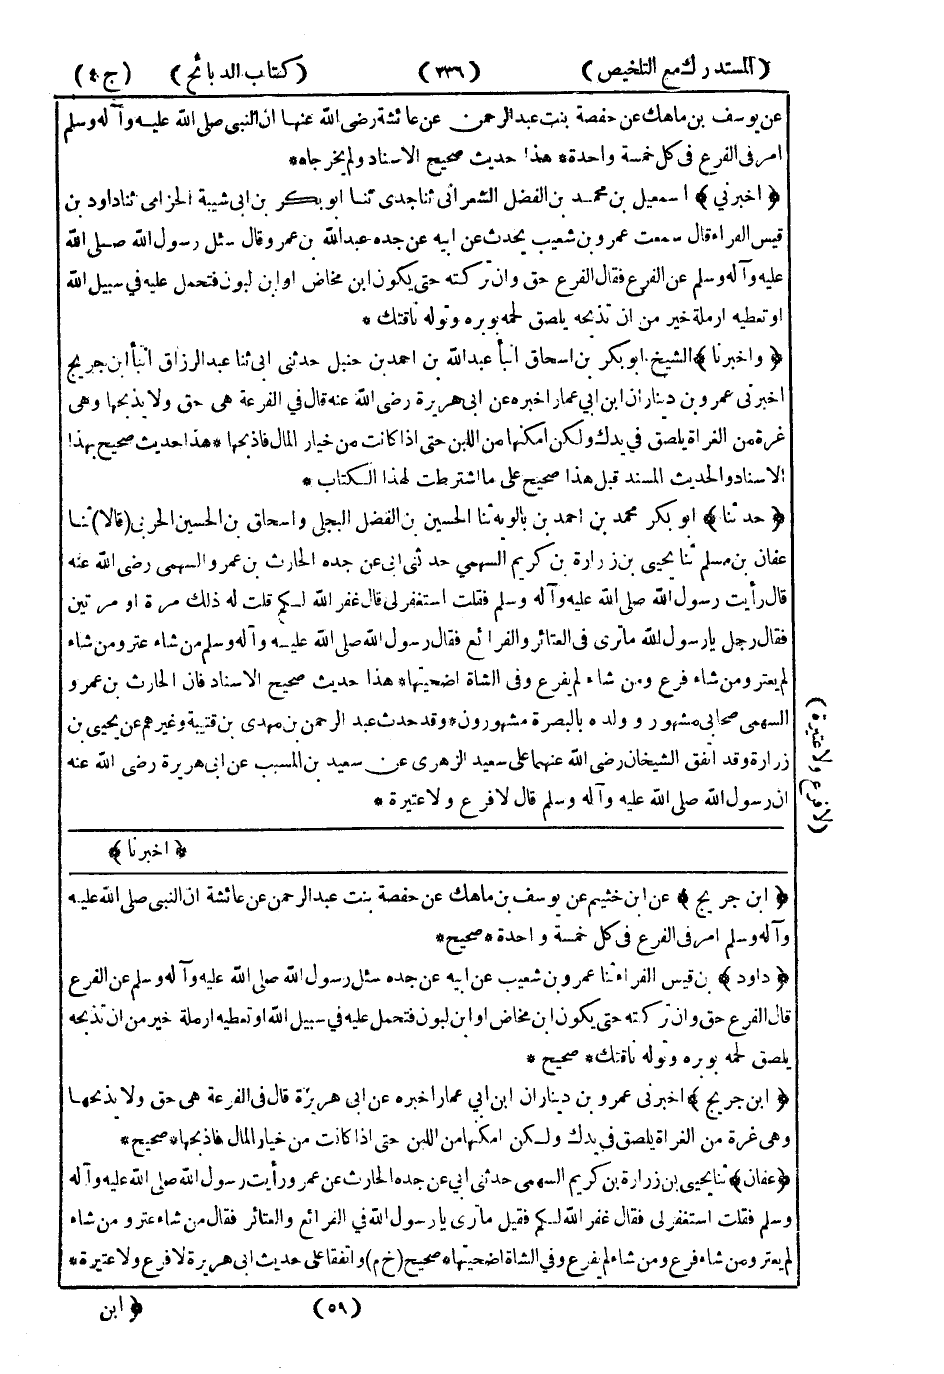 (المستدرك مع التلخيص) (٢٣٦) (كتاب الذبائح) (ج ٤)
عن يوسف بن ماهك عن حفصة بنت عبد الرحمن عن عائشة رضى الله عنها ان النبى صلى الله عليه وآله وسلم
امر فى الفرع فى كل خمسة واحدة * هذا حديث صحيح الاسناد ولم يخرجاه *
﴿ اخبرني ﴾ اسمعيل بن محمد بن الفضل الشعرانى ثنا جدى ثنا ابو بكر بن ابى شيبة الحزامى ثنا داود بن
قيس الفراء قال سمعت عمرو بن شعيب يحدث عن ابيه عن جده عبد الله بن عمرو قال سئل رسول الله صلى الله
عليه وآله وسلم عن الفرع فقال الفرع حق وان تركته حتى يكون ابن مخاض او ابن لبون فتحمل عليه فى سبيل الله
او تعطيه ارملة خير من ان تذبحه يلصق لحمه بوبره وتوله ناقتك *
﴿ واخبرنا ﴾ الشيخ ابو بكر بن اسحاق انبأ عبد الله بن احمد بن حنبل حدثنى ابى ثنا عبد الرزاق انبأ ابن جريج
اخبرنى عمرو بن دينار ان ابن ابى عمار اخبره عن ابى هريرة رضى الله عنه قال في الفرعة هى حق ولا يذبحها وهى
غرة من الغراة يلصق في يدك ولكن امكنها من اللبن حتى اذا كانت من خيار المال فاذبحها * هذا حديث صحيح بهذا
الاسناد والحديث المسند قبل هذا صحيح على ما اشترطت لهذا الكتاب *
﴿ حدثنا ﴾ ابو بكر محمد بن احمد بن بالويه ثنا الحسين بن الفضل البجلى واسحاق بن الحسين الحربى (قالا) ثنا
عفان بن مسلم ثنا يحيى بن زرارة بن كريم السهمي حدثنى ابى عن جده الحارث بن عمرو السهمى رضى الله عنه
قال رأيت رسول الله صلى الله عليه وآله وسلم فقلت استغفر لى قال غفر الله لكم قلت له ذلك مرة او مرتين
فقال رجل يارسول الله ماترى فى العتائر والفرائع فقال رسول الله صلى الله عليه وآله وسلم من شاء عتر ومن شاء
لم يعتر ومن شاء فرع ومن شاء لم يفرع وفى الشاة اضحيتها * هذا حديث صحيح الاسناد فان الحارث بن عمرو
السهمى صحابى مشهور وولده بالبصرة مشهورون * وقد حدث عبد الرحمن بن مهدى بن قتيبة وغيرهم عن يحيى بن
زرارة وقد اتفق الشيخان رضى الله عنهما على سعيد الزهرى عن سعيد بن المسيب عن ابى هريرة رضى الله عنه
ان رسول الله صلى الله عليه وآله وسلم قال لا فرع ولا عتيرة *
(لا فرع ولا عتيرة)
﴿ اخبرنا ﴾
﴿ ابن جريج ﴾ عن ابن خثيم عن يوسف بن ماهك عن حفصة بنت عبد الرحمن عن عائشة ان النبى صلى الله عليه
وآله وسلم امر فى الفرع فى كل خمسة واحدة * صحيح *
﴿ داود ﴾ بن قيس الفراء ثنا عمرو بن شعيب عن ابيه عن جده سئل رسول الله صلى الله عليه وآله وسلم عن الفرع
قال الفرع حق وان تركته حتى يكون ابن مخاض او ابن لبون فتحمل عليه في سبيل الله او تعطيه ارملة خير من ان تذبحه
يلصق لحمه بوبره وتوله ناقتك * صحيح *
﴿ ابن جريج ﴾ اخبرنى عمرو بن دينار ان ابن ابي عمار اخبره عن ابى هريرة قال فى الفرعة هى حق ولا يذبحها
وهى غرة من الغراة يلصق فى يدك ولكن امكنها من اللبن حتى اذا كانت من خيار المال فاذبحها * صحيح *
﴿ عفان ﴾ ثنا يحيى بن زرارة بن كريم السهمى حدثنى أبي عن جده الحارث عن عمرو رأيت رسول الله صلى الله عليه وآله
وسلم فقلت استغفر لى فقال غفر الله لكم فقيل ماترى يارسول الله في الفرائع والعتائر فقال من شاء عتر و من شاء
لم يعتر ومن شاء فرع ومن شاء لم يفرع وفي الشاة اضحيتها * صحيح (خ م) واتفقا على حديث ابى هريرة لا فرع ولا عتيرة *
(٥٩) ﴿ ابن